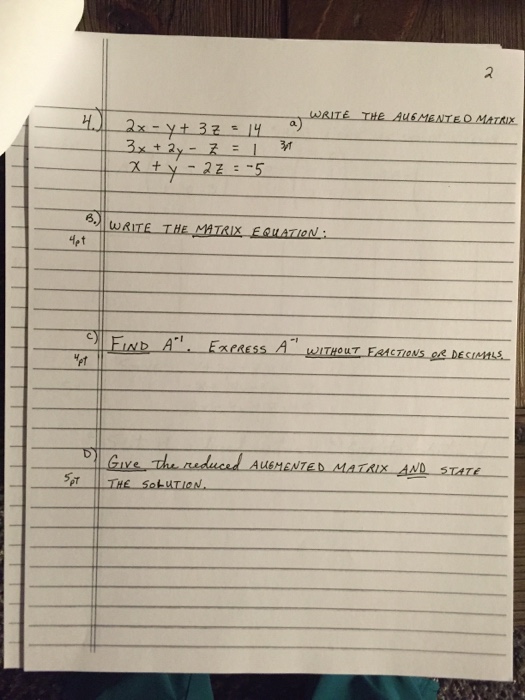 2
4.) 2x - y + 3z = 14 a) WRITE THE AUGMENTED MATRIX
3x + 2y - z = 1 3pt
x + y - 2z = -5
B.) WRITE THE MATRIX EQUATION:
4pt
c) FIND A⁻¹. EXPRESS A⁻¹ WITHOUT FRACTIONS OR DECIMALS.
4pt
D) Give the reduced AUGMENTED MATRIX AND STATE
5pt THE SOLUTION.